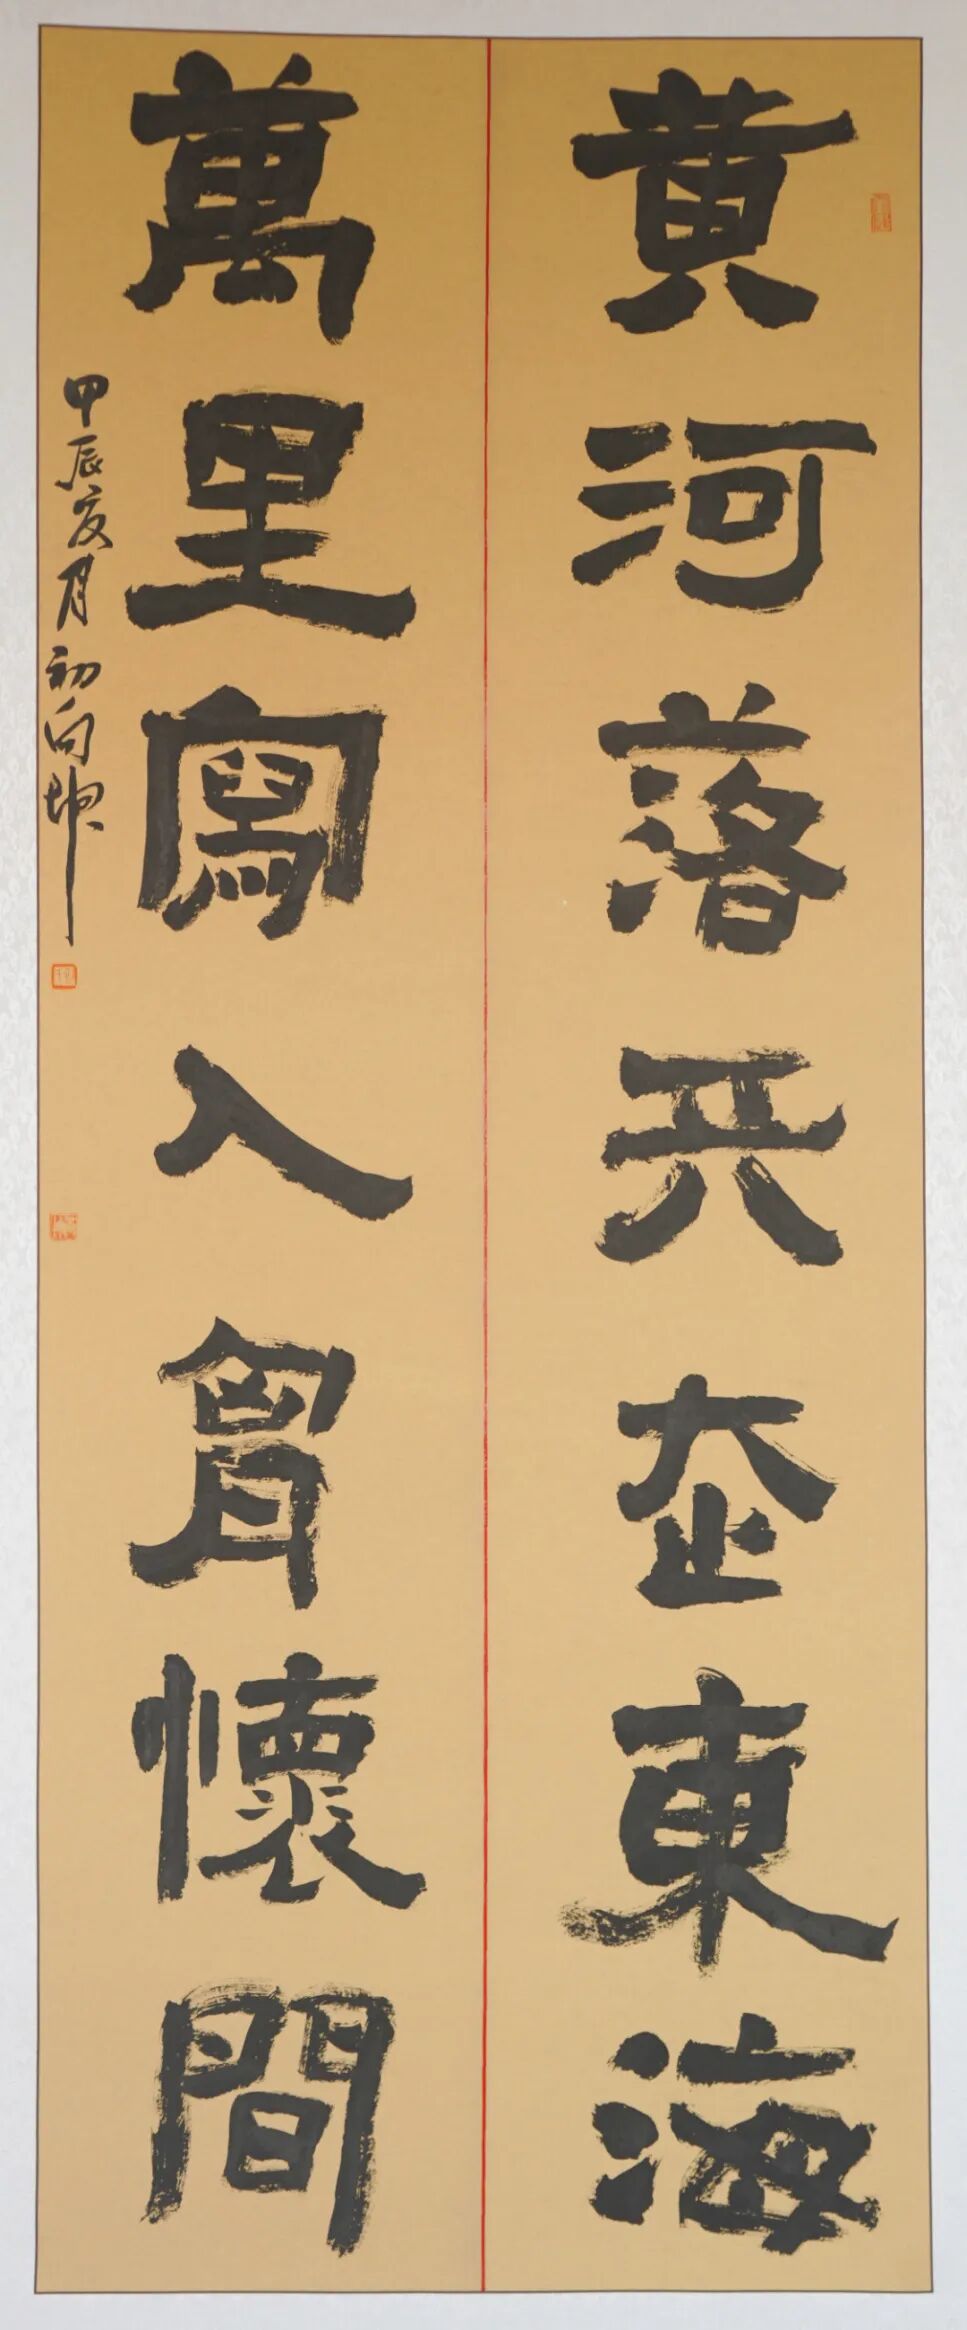 黄河落天走東海
萬里寫入胷懷間
甲辰夏月初向坤